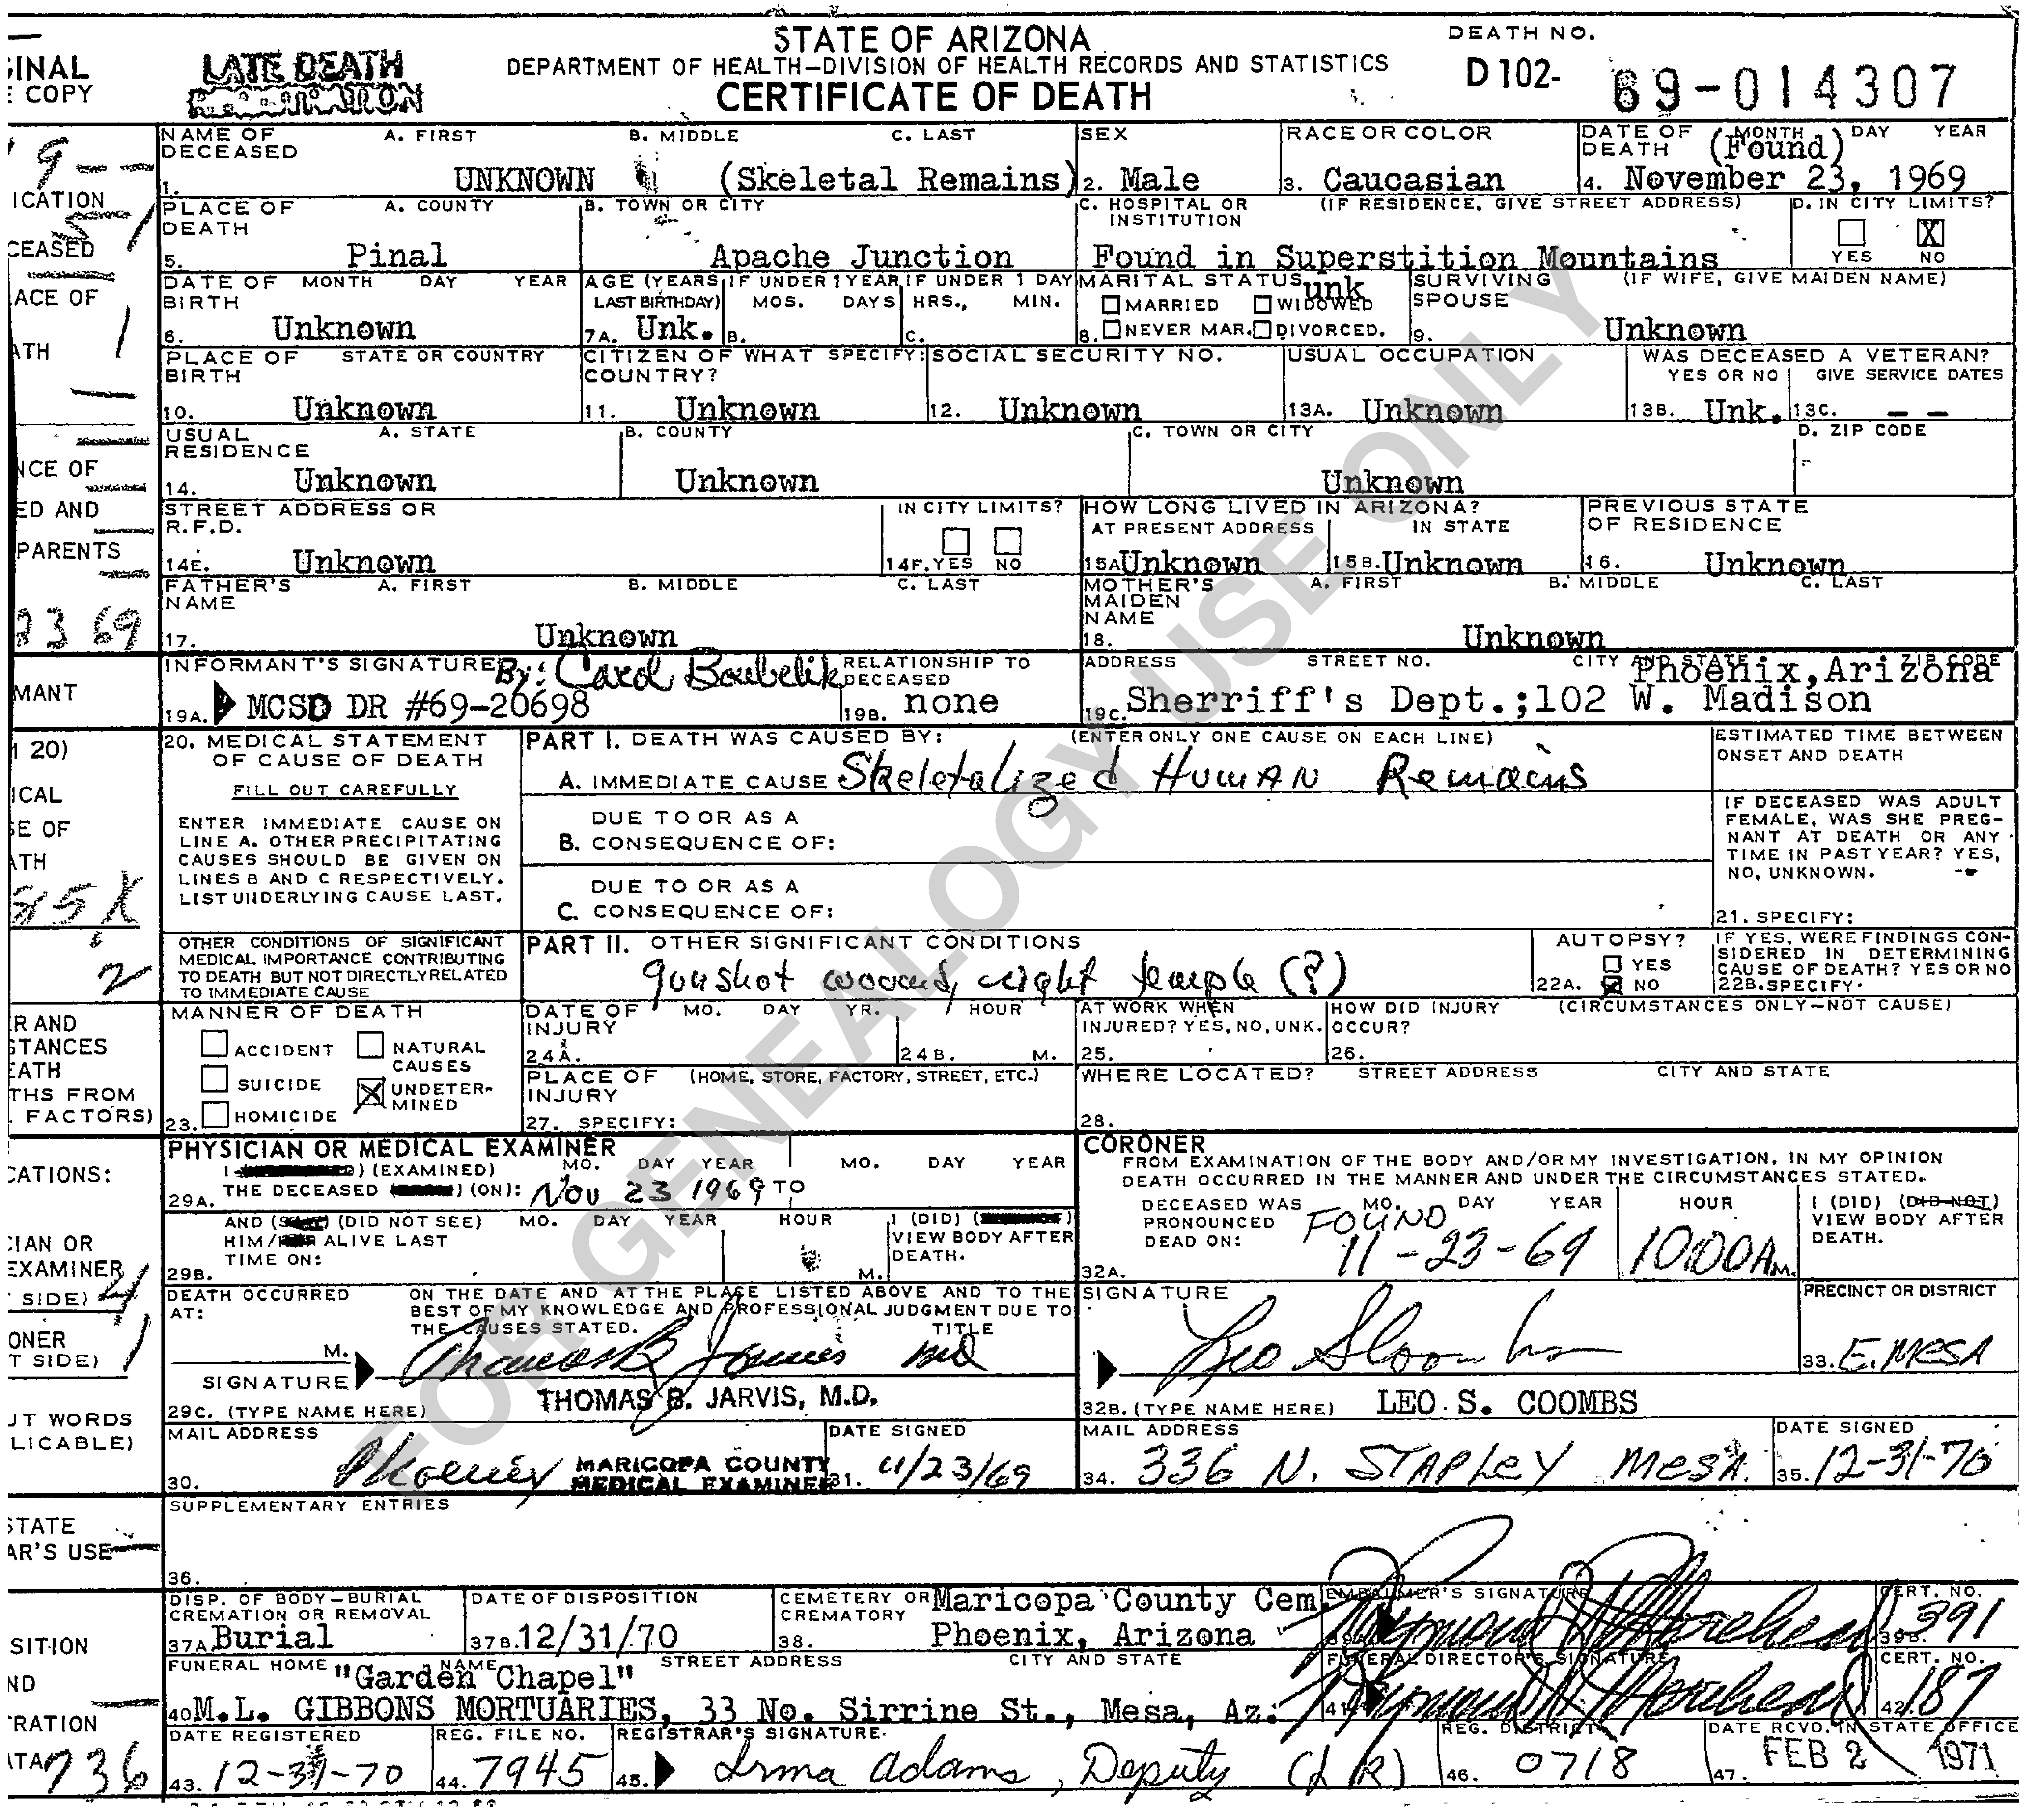 STATE OF ARIZONA
DEPARTMENT OF HEALTH—DIVISION OF HEALTH RECORDS AND STATISTICS
CERTIFICATE OF DEATH
LATE DEATH
DEATH NO.
D 102- 69-014307
INAL
COPY
NAME OF DECEASED A. FIRST B. MIDDLE C. LAST
1. UNKNOWN (Skeletal Remains)
SEX
2. Male
RACE OR COLOR
3. Caucasian
DATE OF DEATH (Found) MONTH DAY YEAR
4. November 23, 1969
ICATION
PLACE OF DEATH A. COUNTY
5. Pinal
B. TOWN OR CITY
Apache Junction
C. HOSPITAL OR INSTITUTION (IF RESIDENCE, GIVE STREET ADDRESS)
Found in Superstition Mountains
D. IN CITY LIMITS?
YES X NO
CEASED
ACE OF
ATH
DATE OF BIRTH MONTH DAY YEAR
6. Unknown
AGE (YEARS LAST BIRTHDAY)
7A. Unk.
IF UNDER 1 YEAR MOS. DAYS
B.
IF UNDER 1 DAY HRS., MIN.
C.
MARITAL STATUS unk
MARRIED WIDOWED
8. NEVER MAR. DIVORCED.
SURVIVING SPOUSE (IF WIFE, GIVE MAIDEN NAME)
9. Unknown
PLACE OF BIRTH STATE OR COUNTRY
10. Unknown
CITIZEN OF WHAT COUNTRY? SPECIFY:
11. Unknown
SOCIAL SECURITY NO.
12. Unknown
USUAL OCCUPATION
13A. Unknown
WAS DECEASED A VETERAN?
YES OR NO GIVE SERVICE DATES
13B. Unk. 13C. — —
USUAL RESIDENCE A. STATE
14. Unknown
B. COUNTY
Unknown
C. TOWN OR CITY
Unknown
D. ZIP CODE
NCE OF
ED AND
PARENTS
STREET ADDRESS OR R.F.D.
14E. Unknown
IN CITY LIMITS?
14F. YES NO
HOW LONG LIVED IN ARIZONA?
AT PRESENT ADDRESS IN STATE
15A Unknown 15B. Unknown
PREVIOUS STATE OF RESIDENCE
16. Unknown
FATHER'S NAME A. FIRST B. MIDDLE C. LAST
17. Unknown
MOTHER'S MAIDEN NAME A. FIRST B. MIDDLE C. LAST
18. Unknown
MANT
INFORMANT'S SIGNATURE By: Carol Boubelik
19A. MCSO DR #69-20698
RELATIONSHIP TO DECEASED
19B. none
ADDRESS STREET NO. CITY AND STATE ZIP CODE
Phoenix, Arizona
19C. Sherriff's Dept.;102 W. Madison
20. MEDICAL STATEMENT OF CAUSE OF DEATH
FILL OUT CAREFULLY
ENTER IMMEDIATE CAUSE ON
LINE A. OTHER PRECIPITATING
CAUSES SHOULD BE GIVEN ON
LINES B AND C RESPECTIVELY.
LIST UNDERLYING CAUSE LAST.
PART I. DEATH WAS CAUSED BY: (ENTER ONLY ONE CAUSE ON EACH LINE)
A. IMMEDIATE CAUSE Skeletalized Human Remains
DUE TO OR AS A
B. CONSEQUENCE OF:
DUE TO OR AS A
C. CONSEQUENCE OF:
ESTIMATED TIME BETWEEN ONSET AND DEATH
IF DECEASED WAS ADULT
FEMALE, WAS SHE PREG-
NANT AT DEATH OR ANY
TIME IN PAST YEAR? YES,
NO, UNKNOWN. --
21. SPECIFY:
OTHER CONDITIONS OF SIGNIFICANT
MEDICAL IMPORTANCE CONTRIBUTING
TO DEATH BUT NOT DIRECTLY RELATED
TO IMMEDIATE CAUSE
PART II. OTHER SIGNIFICANT CONDITIONS
gunshot wound, right temple (?)
AUTOPSY?
YES
22A. NO
IF YES, WERE FINDINGS CON-
SIDERED IN DETERMINING
CAUSE OF DEATH? YES OR NO
22B. SPECIFY.
MANNER OF DEATH
ACCIDENT NATURAL CAUSES
SUICIDE X UNDETER-MINED
23. HOMICIDE
DATE OF INJURY MO. DAY YR. HOUR
24A. 24B. M.
AT WORK WHEN INJURED? YES, NO, UNK.
25.
HOW DID INJURY OCCUR? (CIRCUMSTANCES ONLY—NOT CAUSE)
26.
PLACE OF INJURY (HOME, STORE, FACTORY, STREET, ETC.)
27. SPECIFY:
WHERE LOCATED? STREET ADDRESS CITY AND STATE
28.
R AND
STANCES
EATH
THS FROM
FACTORS)
PHYSICIAN OR MEDICAL EXAMINER
(EXAMINED) MO. DAY YEAR MO. DAY YEAR
29A. THE DECEASED (ON): Nov 23 1969 TO
AND (DID NOT SEE) MO. DAY YEAR HOUR
HIM/ ALIVE LAST
TIME ON:
29B. M.
I (DID)
VIEW BODY AFTER
DEATH.
CORONER
FROM EXAMINATION OF THE BODY AND/OR MY INVESTIGATION, IN MY OPINION
DEATH OCCURRED IN THE MANNER AND UNDER THE CIRCUMSTANCES STATED.
DECEASED WAS PRONOUNCED DEAD ON: MO. DAY YEAR HOUR
32A. FOUND 11-23-69 10:00 A M.
I (DID) (DID NOT)
VIEW BODY AFTER
DEATH.
DEATH OCCURRED AT: M.
ON THE DATE AND AT THE PLACE LISTED ABOVE AND TO THE
BEST OF MY KNOWLEDGE AND PROFESSIONAL JUDGMENT DUE TO
THE CAUSES STATED. TITLE
SIGNATURE Thomas B Jarvis MD
29C. (TYPE NAME HERE) THOMAS B. JARVIS, M.D.
SIGNATURE
Leo S Coombs
32B. (TYPE NAME HERE) LEO S. COOMBS
PRECINCT OR DISTRICT
33. E. MESA
MAIL ADDRESS
30. Phoenix MARICOPA COUNTY
MEDICAL EXAMINER
DATE SIGNED
31. 11/23/69
MAIL ADDRESS
34. 336 N. STAPLEY MESA.
DATE SIGNED
35. 12-31-70
SUPPLEMENTARY ENTRIES
36.
STATE
AR'S USE
DISP. OF BODY—BURIAL
CREMATION OR REMOVAL
37A Burial
DATE OF DISPOSITION
37B. 12/31/70
CEMETERY OR CREMATORY
38. Maricopa County Cem.
Phoenix, Arizona
EMBALMER'S SIGNATURE
CERT. NO.
39B. 391
FUNERAL HOME NAME STREET ADDRESS CITY AND STATE
"Garden Chapel"
40 M.L. GIBBONS MORTUARIES, 33 No. Sirrine St., Mesa, Az.
FUNERAL DIRECTOR'S SIGNATURE
41.
CERT. NO.
42. 187
DATE REGISTERED
43. 12-31-70
REG. FILE NO.
44. 7945
REGISTRAR'S SIGNATURE
45. Irma Adams, Deputy (LR)
REG. DISTRICT
46. 0718
DATE RCVD. IN STATE OFFICE
47. FEB 2 1971
736
FOR GENEALOGY USE ONLY